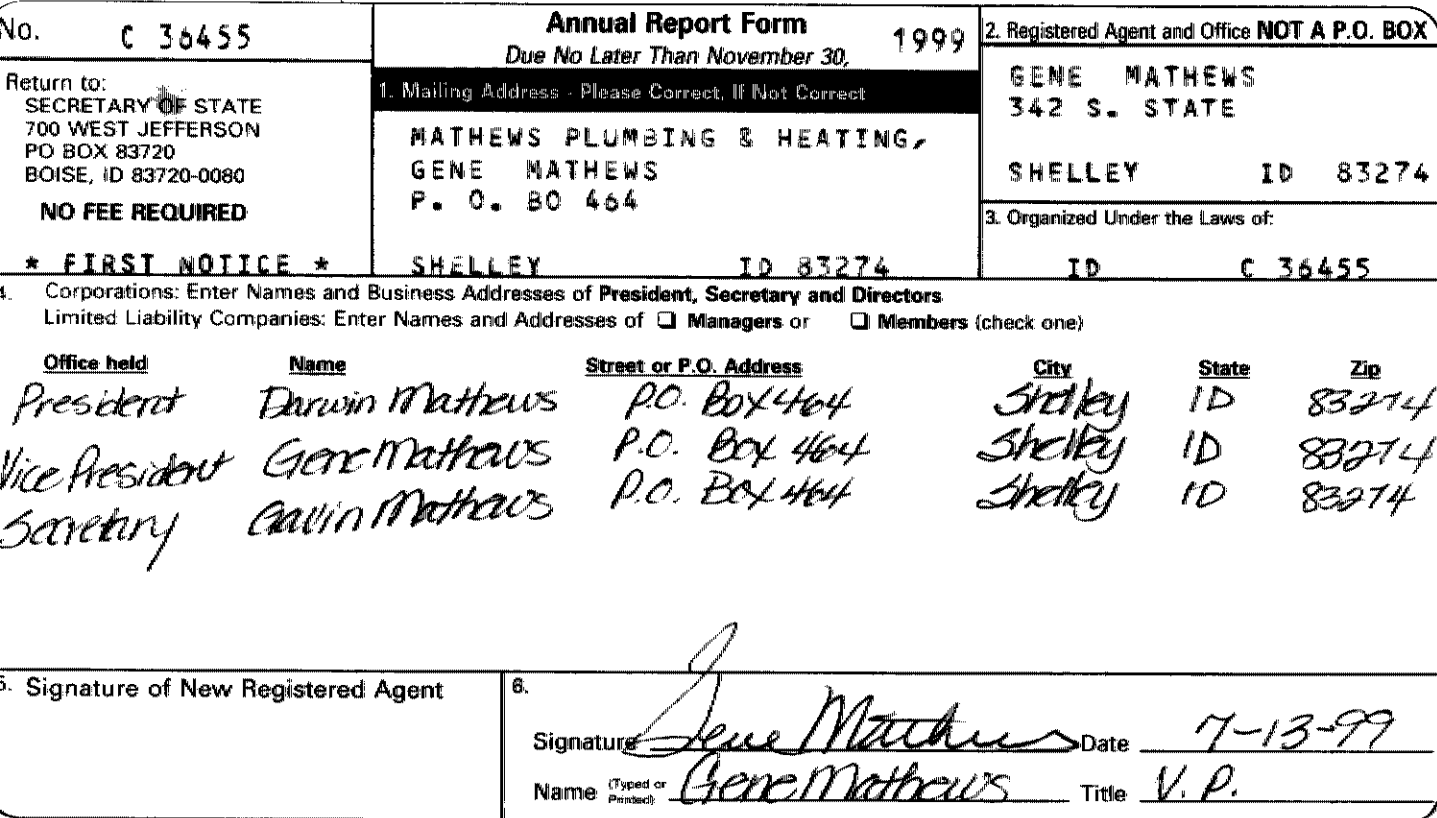 No. C 36455
Return to:
SECRETARY OF STATE
700 WEST JEFFERSON
PO BOX 83720
BOISE, ID 83720-0080
NO FEE REQUIRED
* FIRST NOTICE *
Annual Report Form 1999
Due No Later Than November 30,
1. Mailing Address - Please Correct, If Not Correct
MATHEWS PLUMBING & HEATING,
GENE MATHEWS
P. O. BO 464
SHELLEY ID 83274
2. Registered Agent and Office NOT A P.O. BOX
GENE MATHEWS
342 S. STATE
SHELLEY ID 83274
3. Organized Under the Laws of:
ID C 36455
4. Corporations: Enter Names and Business Addresses of President, Secretary and Directors
Limited Liability Companies: Enter Names and Addresses of ❑ Managers or ❑ Members (check one)
Office held Name Street or P.O. Address City State Zip
President Darwin Mathews P.O. Box 464 Shelley ID 83274
Vice President Gene Mathews P.O. Box 464 Shelley ID 83274
Secretary Gavin Mathews P.O. Box 464 Shelley ID 83274
5. Signature of New Registered Agent
6.
Signature Gene Mathews Date 7-13-99
Name (Typed or Printed) Gene Mathews Title V. P.